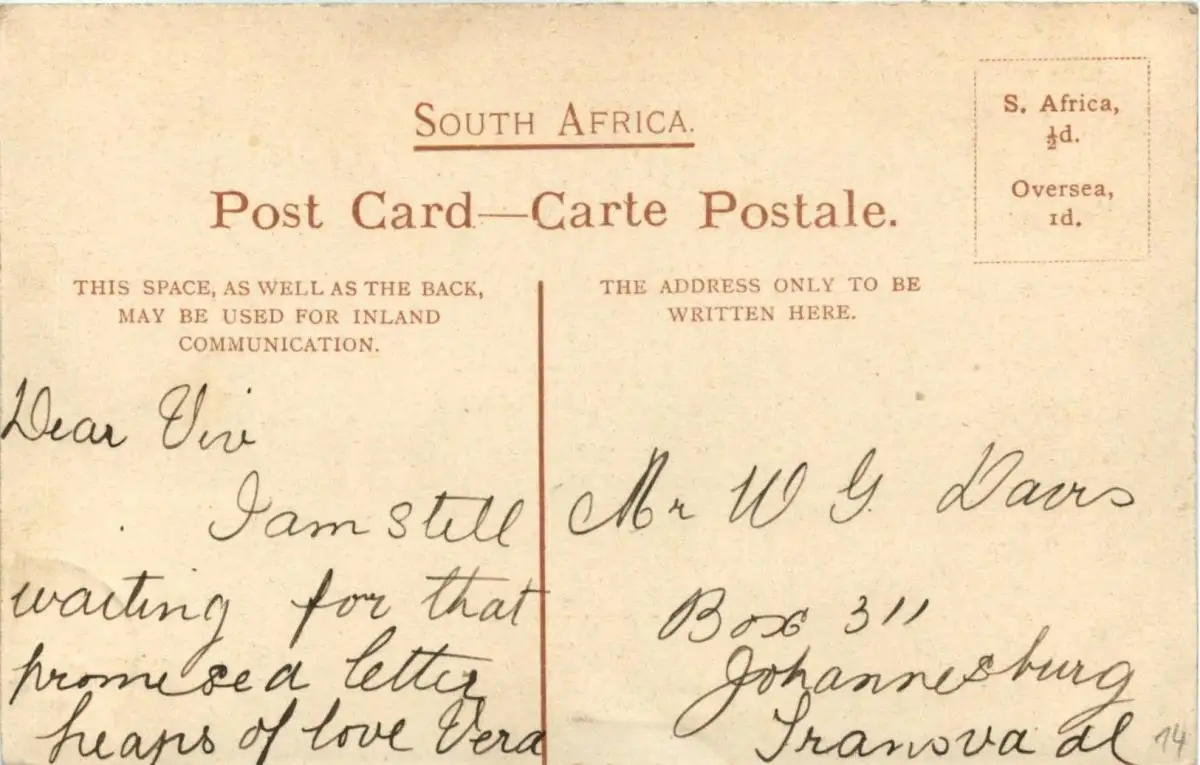 SOUTH AFRICA.
Post Card—Carte Postale.
S. Africa,
½d.
Oversea,
1d.
THIS SPACE, AS WELL AS THE BACK,
MAY BE USED FOR INLAND
COMMUNICATION.
Dear Viv
I am still
waiting for that
promised letter
heaps of love Vera
THE ADDRESS ONLY TO BE
WRITTEN HERE.
Mr W G. Davis
Box 311
Johannesburg
Transvaal
14